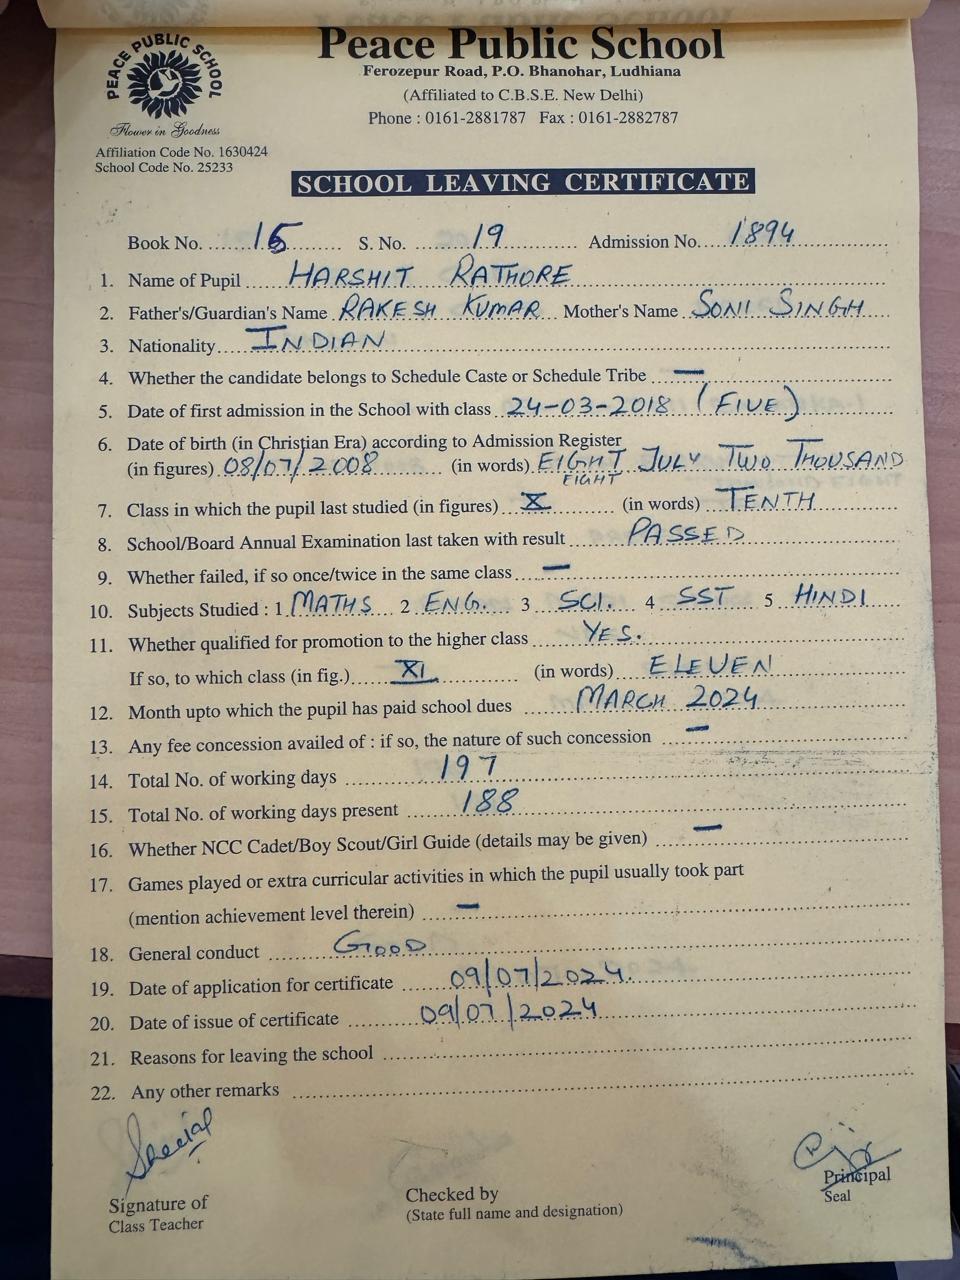 Peace Public School
PEACE PUBLIC SCHOOL
Ferozepur Road, P.O. Bhanohar, Ludhiana
(Affiliated to C.B.S.E. New Delhi)
Phone : 0161-2881787 Fax : 0161-2882787
Flower in Goodness
Affiliation Code No. 1630424
School Code No. 25233
SCHOOL LEAVING CERTIFICATE
Book No. 15 S. No. 19 Admission No. 1894
1. Name of Pupil HARSHIT RATHORE
2. Father's/Guardian's Name RAKESH KUMAR Mother's Name SONI SINGH
3. Nationality INDIAN
4. Whether the candidate belongs to Schedule Caste or Schedule Tribe —
5. Date of first admission in the School with class 24-03-2018 (FIVE)
6. Date of birth (in Christian Era) according to Admission Register
(in figures) 08/07/2008 (in words) EIGHT JULY TWO THOUSAND
EIGHT
7. Class in which the pupil last studied (in figures) X (in words) TENTH
8. School/Board Annual Examination last taken with result PASSED
9. Whether failed, if so once/twice in the same class —
10. Subjects Studied : 1 MATHS 2 ENG. 3 SCI. 4 SST 5 HINDI
11. Whether qualified for promotion to the higher class YES.
If so, to which class (in fig.) XI (in words) ELEVEN
12. Month upto which the pupil has paid school dues MARCH 2024
13. Any fee concession availed of : if so, the nature of such concession —
14. Total No. of working days 197
15. Total No. of working days present 188
16. Whether NCC Cadet/Boy Scout/Girl Guide (details may be given) —
17. Games played or extra curricular activities in which the pupil usually took part
(mention achievement level therein) —
18. General conduct GOOD
19. Date of application for certificate 09/07/2024.
20. Date of issue of certificate 09/07/2024
21. Reasons for leaving the school
22. Any other remarks
Signature of
Class Teacher
Checked by
(State full name and designation)
Principal
Seal